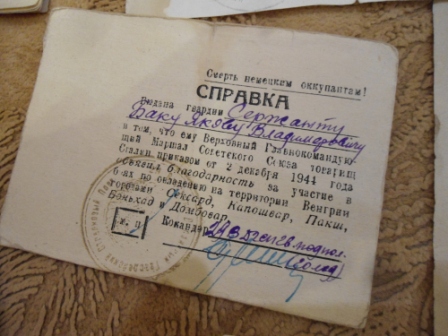 Смерть немецким оккупантам!
СПРАВКА
Выдана гвардии Сержанту
Баку Якову Владимировичу
в том, что ему Верховный Главнокомандую-
щий Маршал Советского Союза товарищ
Сталин приказом от 2 декабря 1944 года
объявил благодарность за участие в
боях по овладению на территории Венгрии
городами Сексард, Капошвар, Пакш,
Боньхад и Домбовар.
Командир
м. п.